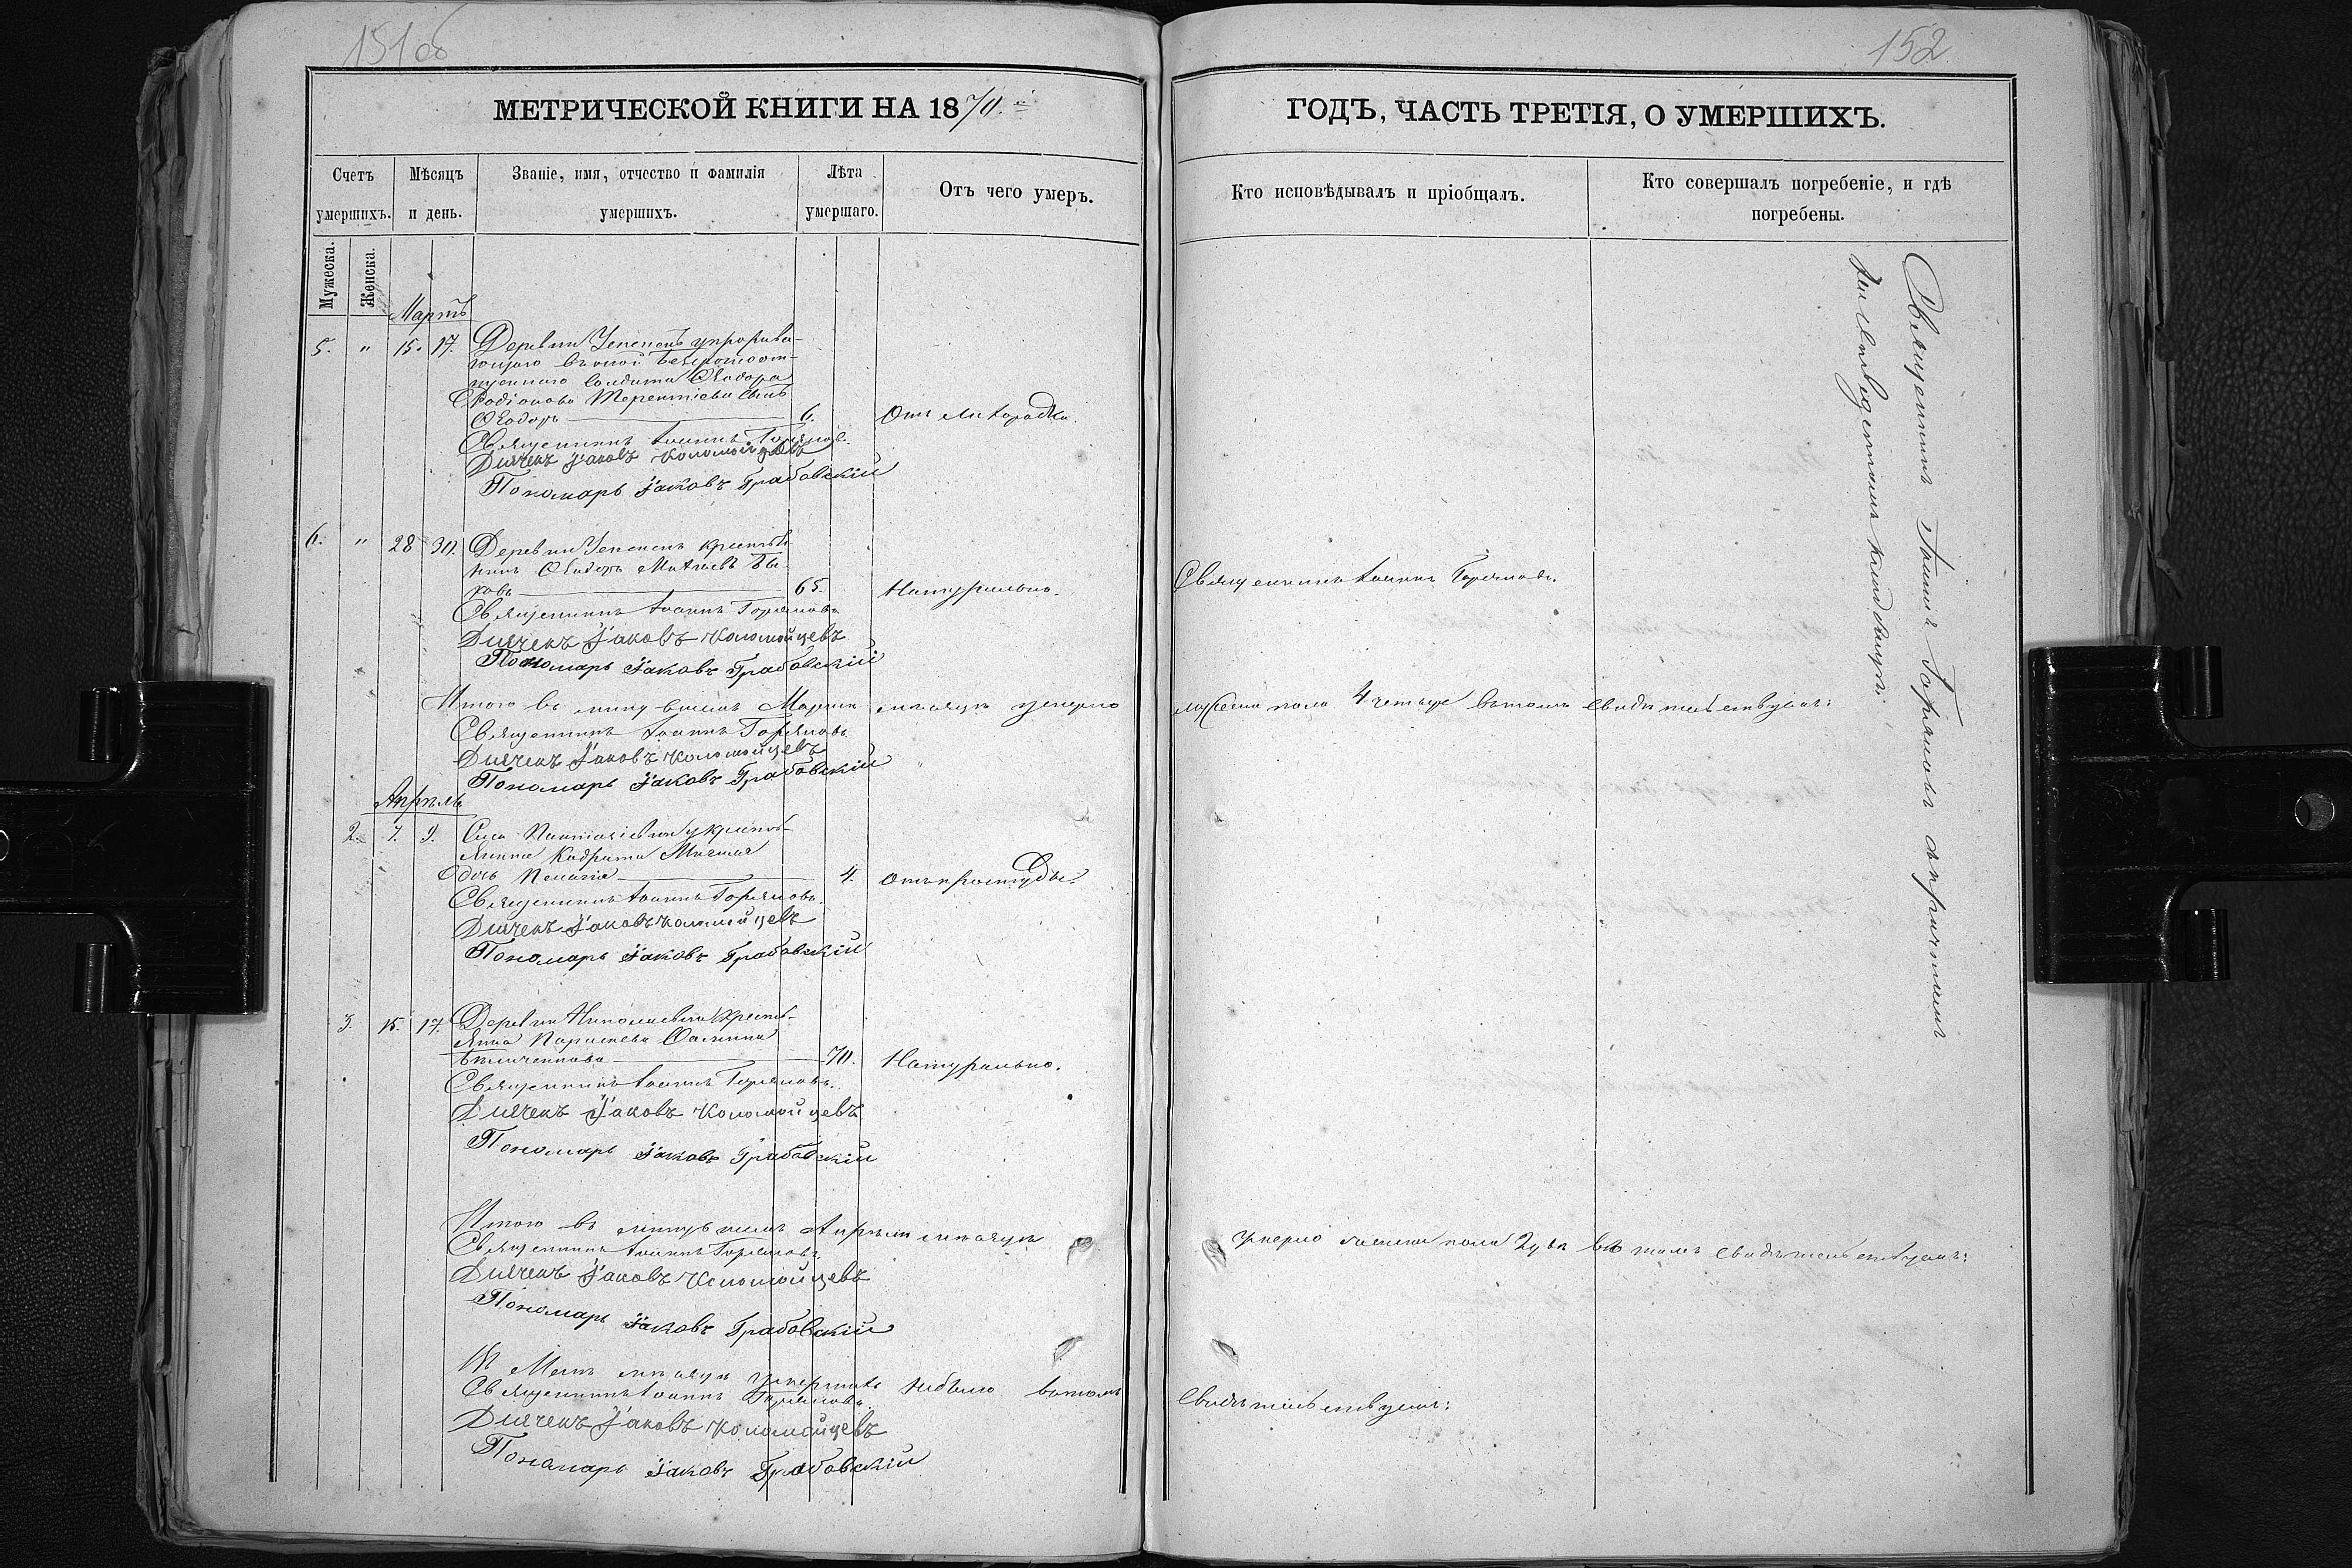 151об
152
МЕТРИЧЕСКОЙ КНИГИ НА 1870.й
ГОДЪ, ЧАСТЬ ТРЕТІЯ, О УМЕРШИХЪ.
Счетъ умершихъ.
Мѣсяцъ и день.
Званіе, имя, отчество и фамилія умершихъ.
Лѣта умершаго.
Отъ чего умеръ.
Кто исповѣдывалъ и пріобщалъ.
Кто совершалъ погребеніе, и гдѣ погребены.
Мужеска.
Женска.
Мартъ
5. " 15. 17. Деревни
солдата Ѳеодора
Родіонова Терентіева сынъ
Ѳеодоръ 6. Отъ лихорадки.
Священникъ Іоаннъ Горяновъ.
Дьячекъ Іаковъ Коломойцевъ
Пономарь Іаковъ Грабовскій
6. " 28 30. Деревни крестья
нинъ Ѳеодоръ Матѳіевъ Бы
ковъ 65. Натурально. Священникъ Іоаннъ Горяновъ.
Священникъ Іоаннъ Горяновъ
Дьячекъ Іаковъ Коломойцевъ
Пономарь Іаковъ Грабовскій
Итого въ минувшемъ Мартѣ мѣсяцѣ умерло мужеска пола 4 четыре въ томъ свидѣтельствуемъ:
Священникъ Іоаннъ Горяновъ
Дьячекъ Іаковъ Коломойцевъ
Пономарь Іаковъ Грабовскій
Апрѣль
2. 7. 9. Села у кресть
янина Кодрата
дочь Пелагія 4. Отъ простуды.
Священникъ Іоаннъ Горяновъ.
Дьячекъ Іаковъ Коломойцевъ
Пономарь Іаковъ Грабовскій
3. 15. 17. Деревни Николаевки кресть
янка
70. Натурально.
Священникъ Іоаннъ Горяновъ.
Дьячекъ Іаковъ Коломойцевъ
Пономарь Іаковъ Грабовскій
Итого въ минувшемъ Апрѣлѣ мѣсяцѣ умерло женска пола 2 два въ томъ свидѣтельствуемъ:
Священникъ Іоаннъ Горяновъ
Дьячекъ Іаковъ Коломойцевъ
Пономарь Іаковъ Грабовскій
Въ Маѣ мѣсяцѣ умершихъ небыло въ томъ свидѣтельствуемъ:
Священникъ Іоаннъ Горяновъ
Дьячекъ Іаковъ Коломойцевъ
Пономарь Іаковъ Грабовскій
Священникъ Іоаннъ Горяновъ съ причтомъ
на кладбищѣ.